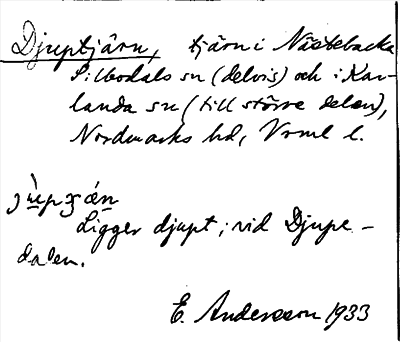 Djuptjärn, tjärn i Nästebacka
Silbodals sn (delvis) och i Kar-
landa sn (till större delen),
Nordmarks hd, Vrml l.
Ligger djupt; vid Djupe-
dalen.
E. Andersson 1933